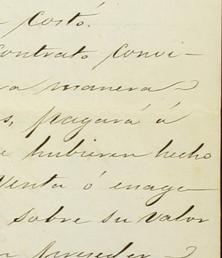 costó.
contrato convi-
a manera
s, pagará á
e hubieren hecho
venta ó enage-
sobre su valor